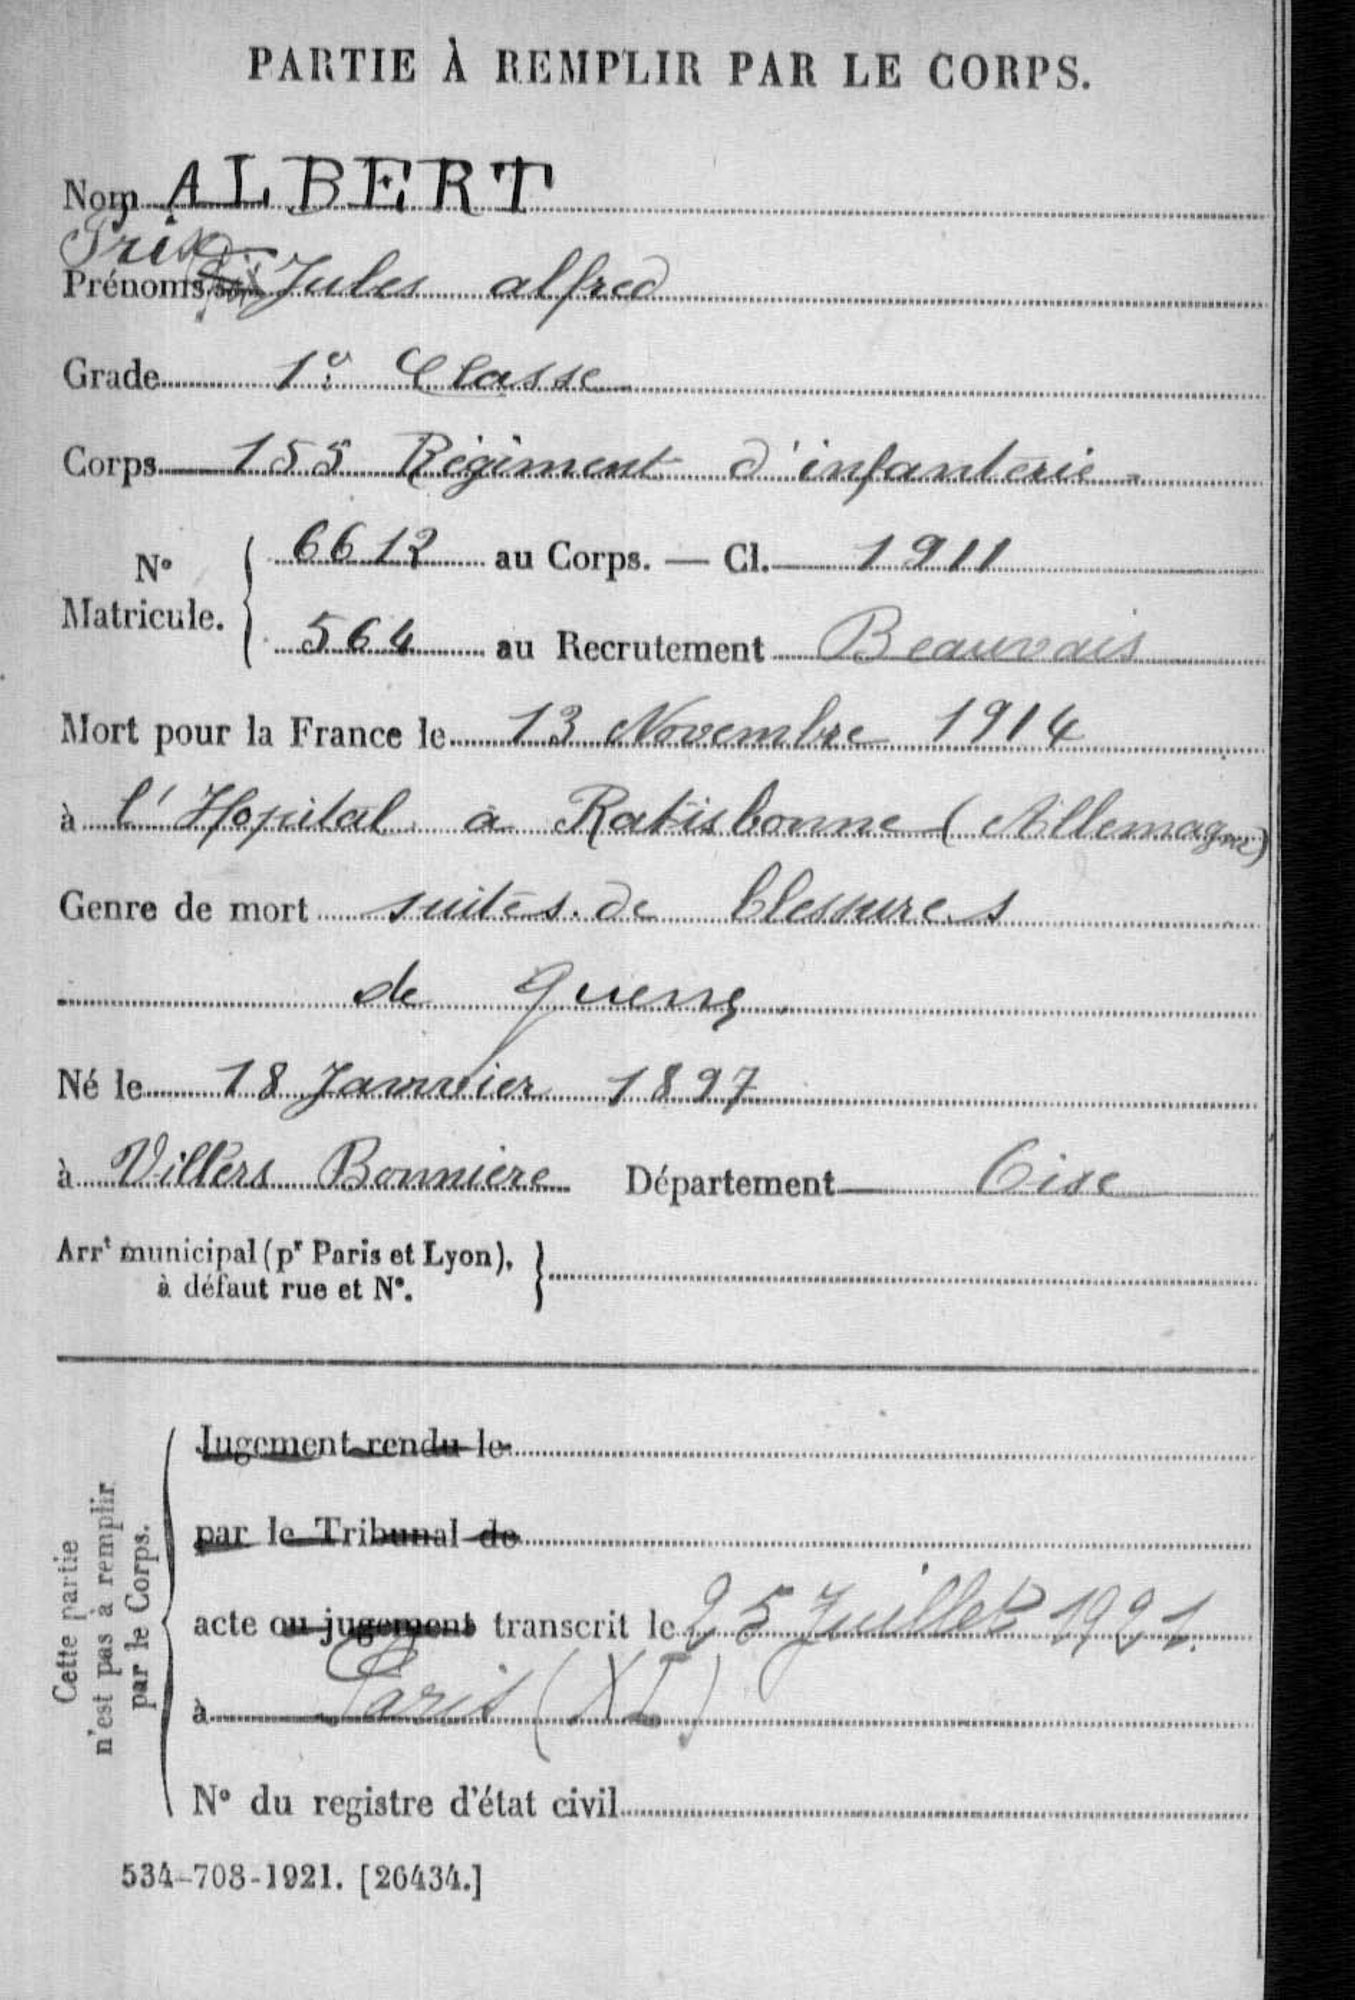 PARTIE À REMPLIR PAR LE CORPS.
Nom ALBERT
Prix
Prénoms Jules alfred
Grade 1e Classe
Corps 155 Régiment d'infanterie
N° Matricule. { 6612 au Corps. — Cl. 1911
564 au Recrutement Beauvais
Mort pour la France le 13 Novembre 1914
à l'Hopital à Ratisbonne (Allemagne)
Genre de mort suites de blessures
de guerre
Né le 18 Janvier 1897
à Villers Bonnière Département Oise
Arrt municipal (pr Paris et Lyon),
à défaut rue et N°.
Cette partie
n'est pas à remplir
par le Corps.
Jugement rendu le
par le Tribunal de
acte ou jugement transcrit le 25 Juillet 1921.
à Paris (XI)
N° du registre d'état civil
534-708-1921. [26434.]